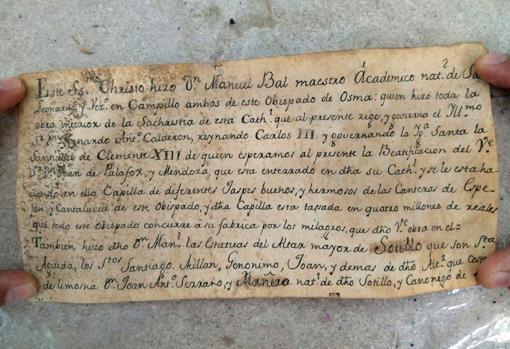 Este Ss.mo Christo hizo Dn. Manuel Bal maestro Académico nat.l de Sn
Leonardo, y Vez.o en Campillo ambos de este Obispado de Osma: quien hizo toda la
obra interior de la Sachristia de esta Cath.l que al presente rige, y govierna el Yll.mo
Sr. Dn. Bernardo Ant.o Calderon, reynando Carlos III. y governando la Yg.a Santa la
Santidad de Clemente XIII de quien esperamos al presente la Beatificacion del Ve.
Sr. Dn. Juan de Palafox, y Mendoza, que esta enterrado en dha su Cath.l y se le esta ha-
ziendo en ella Capilla de diferentes Jaspes buenos, y hermosos de las Canteras de Espe-
jon, y Cantalucia de este Obispado, y dha Capilla esta tasada en quatro millones de reales
que todo este obispado concurre a su fabrica por los milagros, que dho Ve. obra en el=
Tambien hizo dho Dn. Man.l las Estatuas del Altar mayor de Sotillo que son Sta
Agueda, los Stos Santiago, Millan, Geronimo, Joan, y demas de dho Alt.r que costeo
de limosna Dn. Joan Ant.o Serrano, y Mañero nat.l de dho Sotillo, y Canonigo de